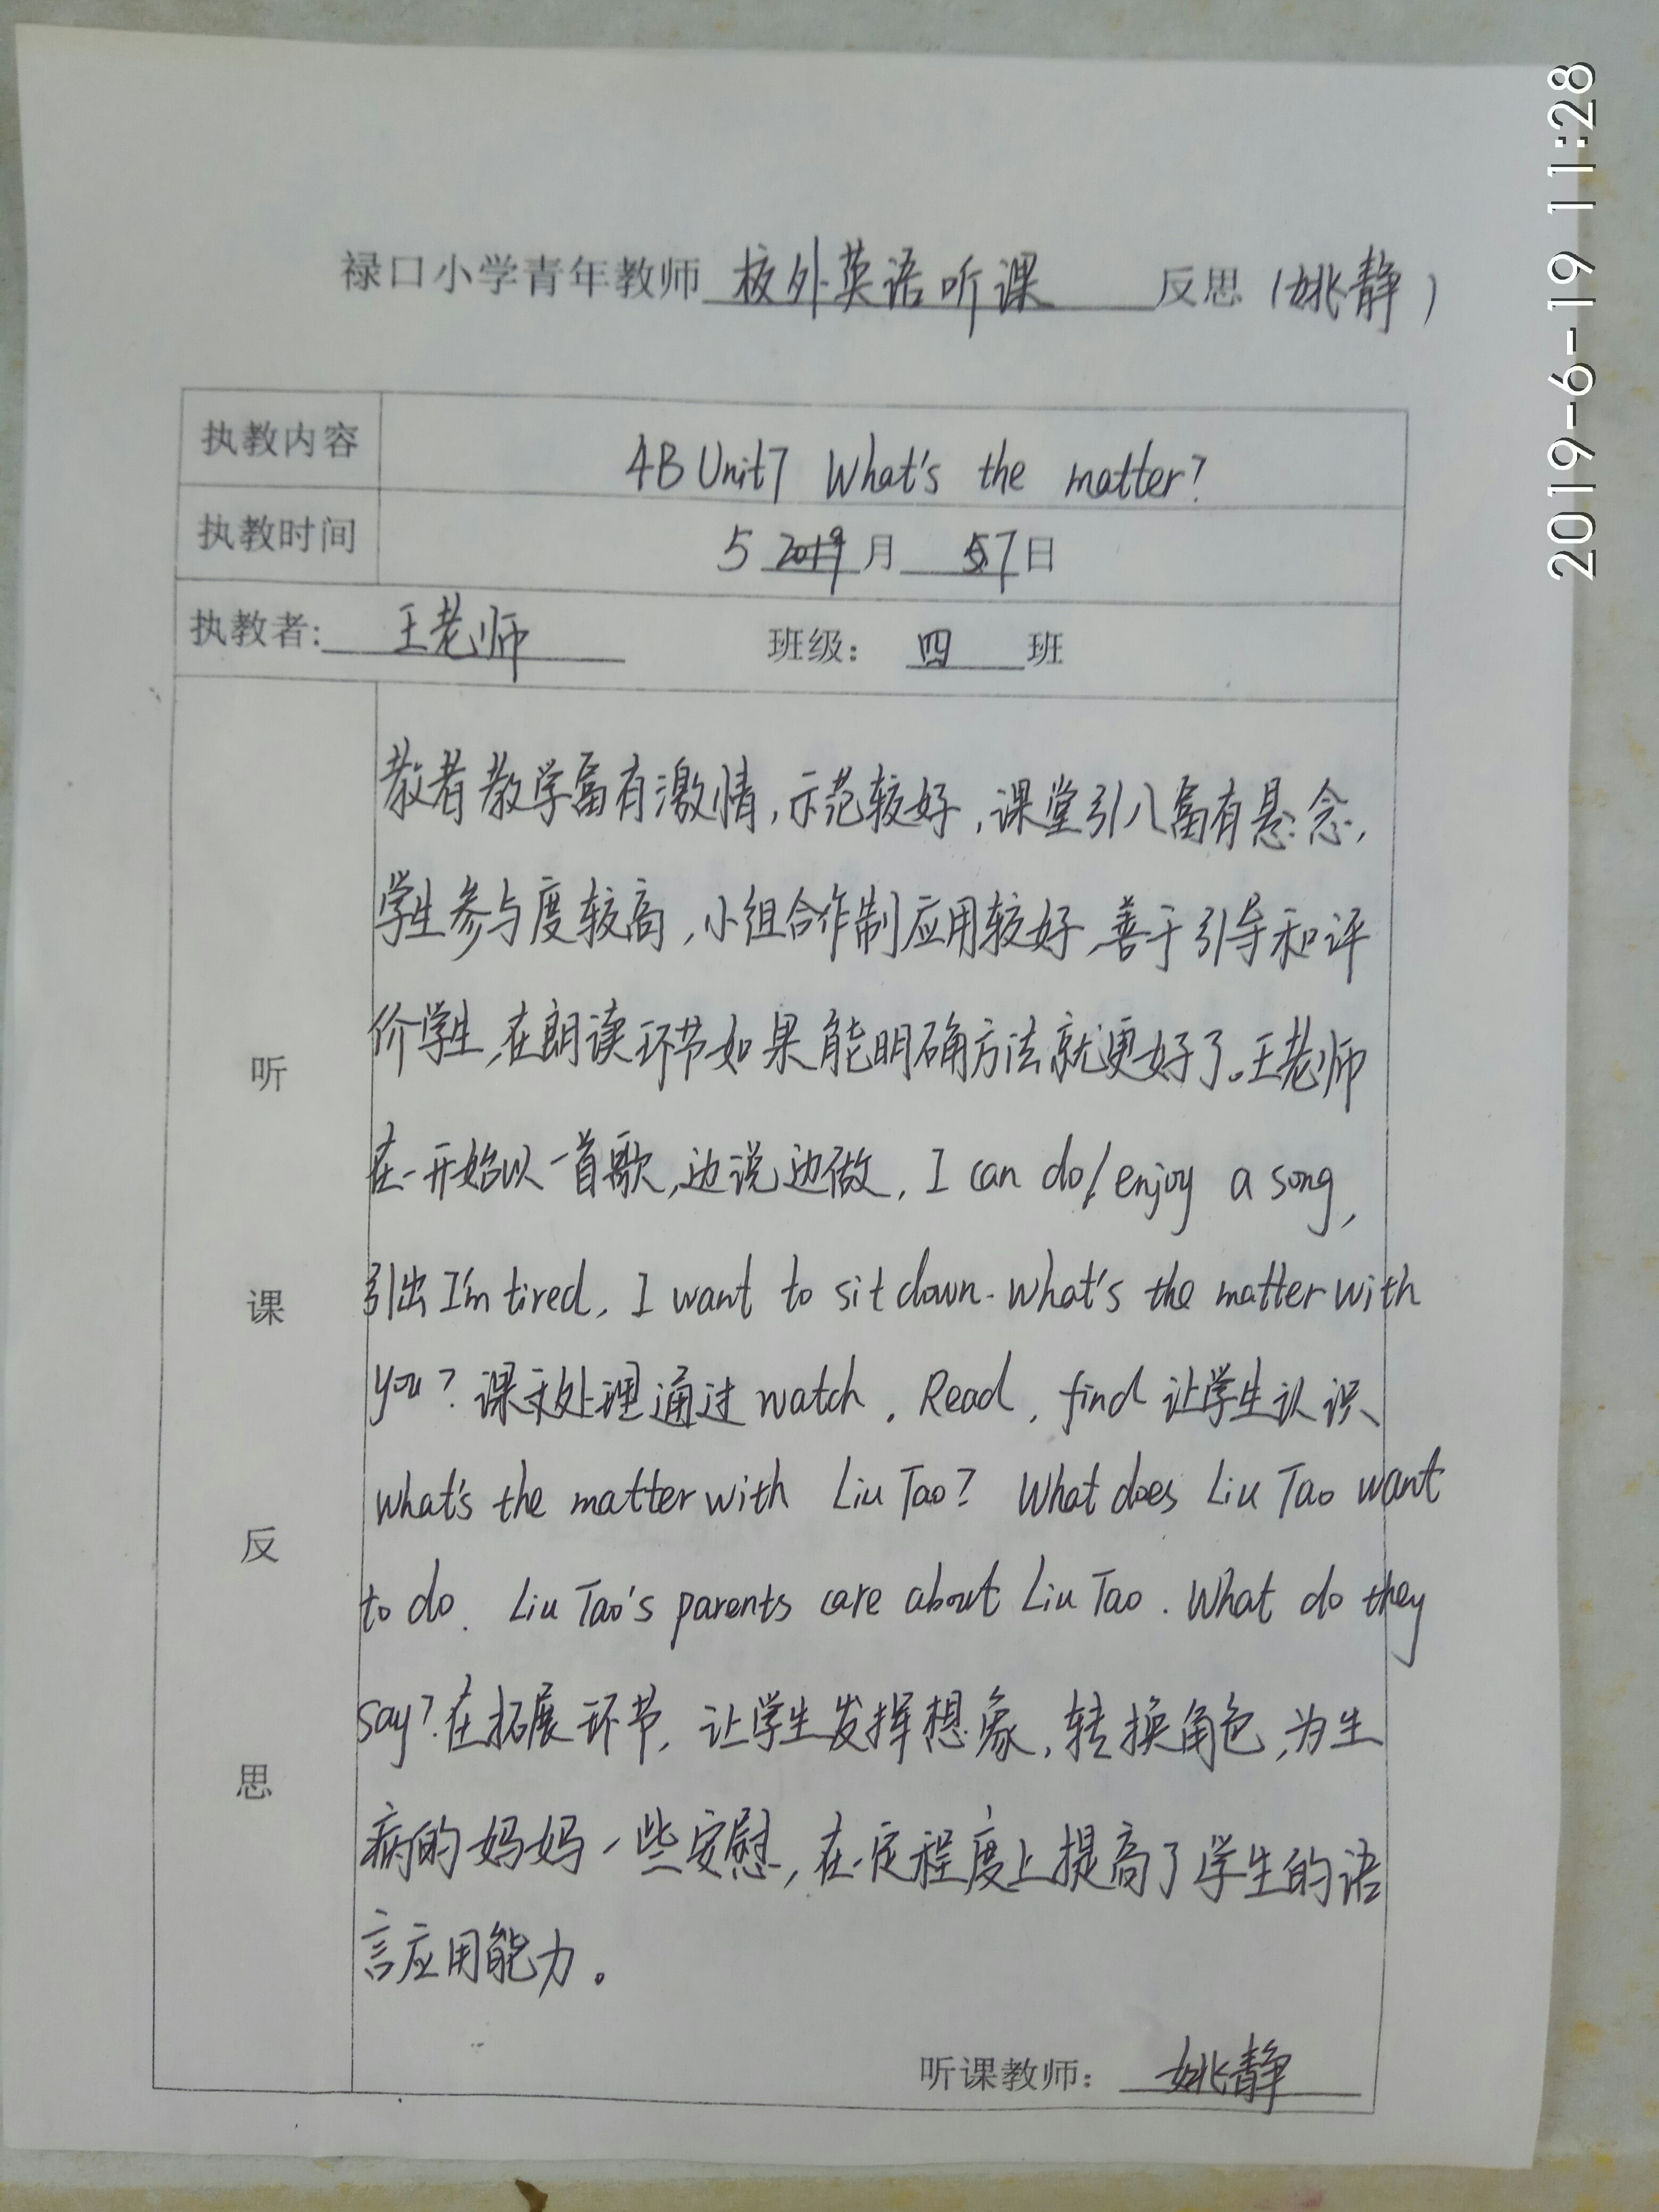 2019-6-19 11:28
禄口小学青年教师 校外英语听课 反思(姚静)
执教内容 4B Unit7 What's the matter?
执教时间 5 2019月 7日
执教者: 王老师 班级: 四 班
听课反思
教者教学富有激情,示范较好,课堂引入富有悬念,
学生参与度较高,小组合作制应用较好,善于引导和评
价学生,在朗读环节如果能明确方法就更好了。王老师
在一开始以一首歌,边说边做, I can do/enjoy a song,
引出I'm tired, I want to sit down. What's the matter with
you? 课文处理通过watch, Read, find 让学生认识
what's the matter with Liu Tao? What does Liu Tao want
to do. Liu Tao's parents care about Liu Tao. What do they
say? 在拓展环节, 让学生发挥想象,转换角色,为生
病的妈妈一些安慰,在一定程度上提高了学生的语
言应用能力。
听课教师: 姚静